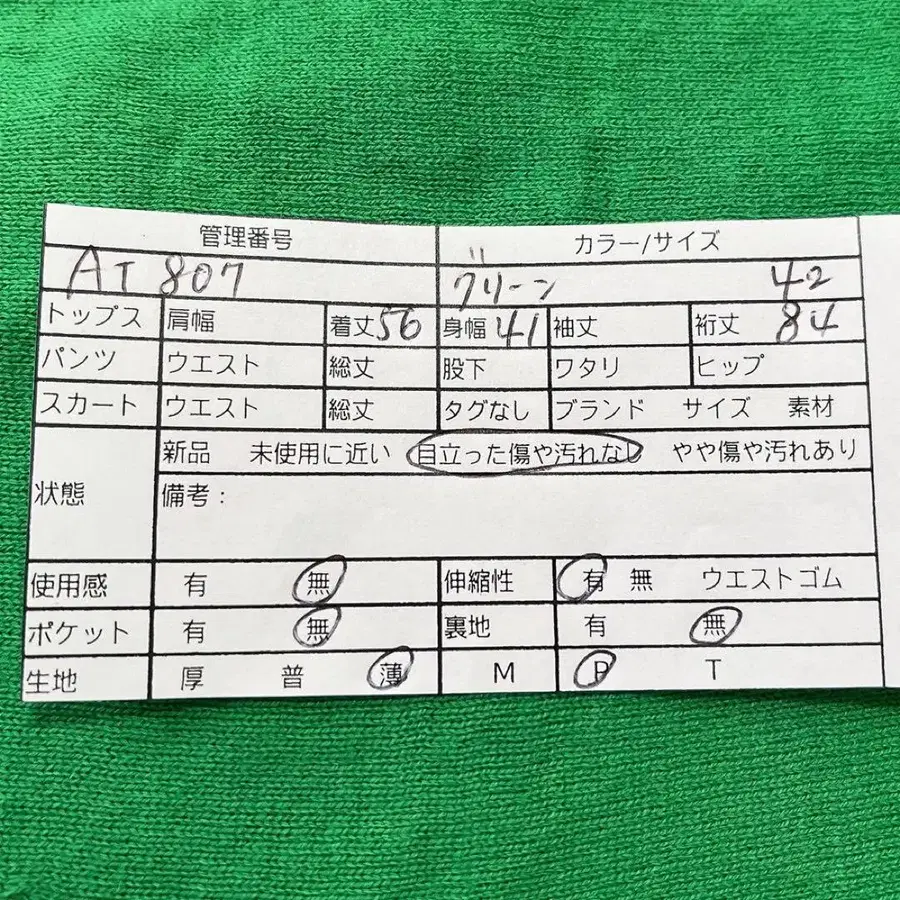 管理番号 カラー/サイズ
AT 807 グリーン 42
トップス 肩幅 着丈56 身幅41 袖丈 裄丈 84
パンツ ウエスト 総丈 股下 ワタリ ヒップ
スカート ウエスト 総丈 タグなし ブランド サイズ 素材
状態 新品 未使用に近い 目立った傷や汚れなし やや傷や汚れあり
備考：
使用感 有 無 伸縮性 有 無 ウエストゴム
ポケット 有 無 裏地 有 無
生地 厚 普 薄 M P T